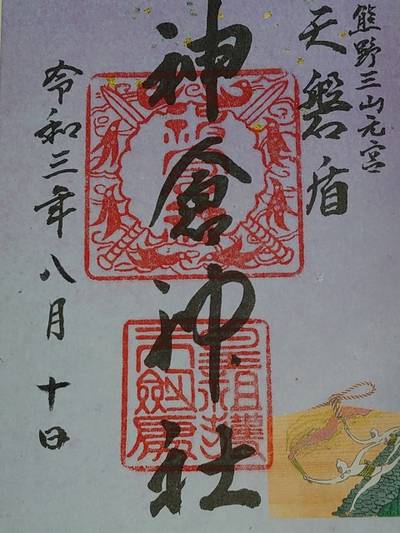 熊野三山元宮
天磐盾
神倉神社
令和三年八月十日